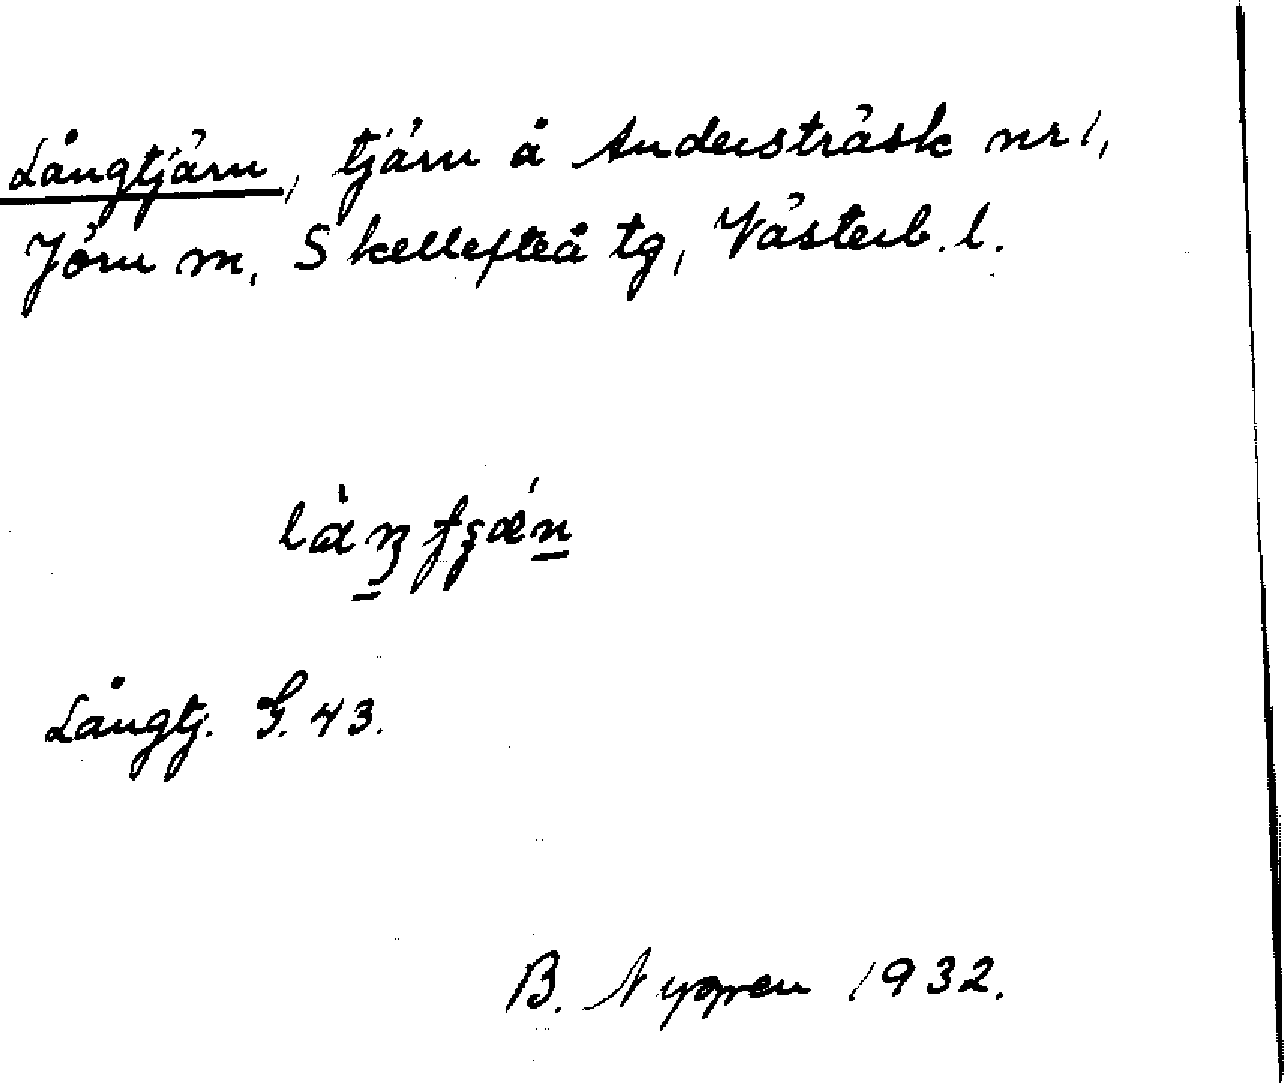 Långtjärn, tjärn å Andersträsk nr 1,
Jörn m, Skellefteå tg, Västerb. l.
Långtj. G. 43.
B. Nygren 1932.